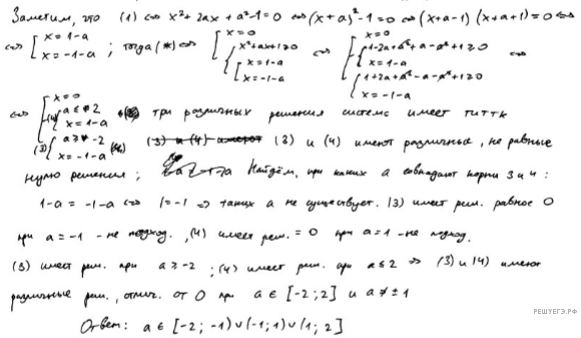 Заметим, что (1) ⇔ x²+2ax+a²-1=0 ⇔ (x+a)²-1=0 ⇔ (x+a-1)(x+a+1)=0 ⇔
⇔ [ x=1-a ; x=-1-a ; тогда (*) ⇔ [ x=0 ; { x²+ax+1≥0 ; [ x=1-a ; x=-1-a ⇔ [ x=0 ; { 1-2a+a²+a-a²+1≥0 ; x=1-a ; { 1+2a+a²-a-a²+1≥0 ; x=-1-a ⇔
⇔ [ x=0 ; (4) { a≤2 ; x=1-a ; (3) { a≥-2 ; x=-1-a три различных решения система имеет ттттк
(3) и (4) (3) и (4) имеют различные, не равные
нулю решения; Найдём, при каких a совпадают корни 3 и 4:
1-a = -1-a ⇔ 1=-1 ⇒ таких a не существует. (3) имеет реш. равное 0
при a=-1 - не подход., (4) имеет реш. = 0 при a=1 - не подход.
(3) имеет реш. при a≥-2 ; (4) имеет реш. при a≤2 ⇒ (3) и (4) имеют
различные реш., отлич. от 0 при a ∈ [-2;2] и a≠±1
Ответ: a ∈ [-2;-1)∪(-1;1)∪(1;2]
РЕШУЕГЭ.РФ